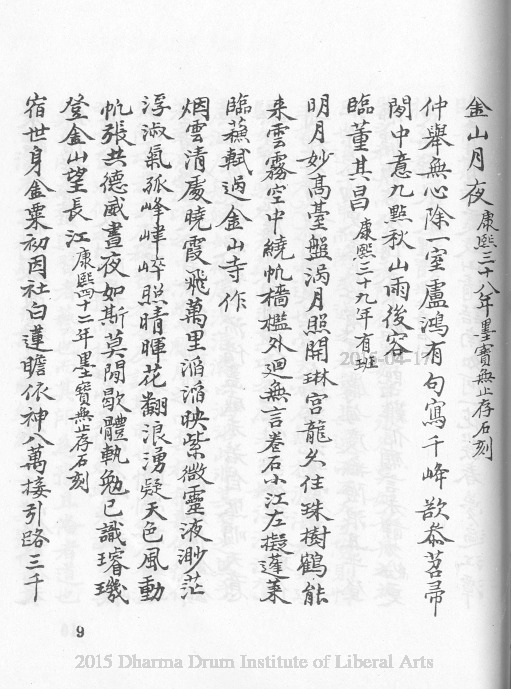 金山月夜 康熙三十八年墨寶無止存石刻
仲舉無心除一室盧鴻有句寫千峰歆奈茗帚
閣中意九點秋山雨後容
臨董其昌 康熙三十九年有班
明月妙高臺盤渦月照開琳宮龍久住珠樹鶴能
来雲霧空中繞帆檣檻外迴無言卷石小江左擬蓬莱
臨蘓軾過金山寺作
烟雲清處曉霞飛萬里滔滔映紫微靈液渺茫
浮淑氣孤峰崒照晴暉花翻浪湧疑天色風動
帆張共德威晝夜如斯莫閒歇體執勉已識璿璣
登金山望長江 康熙四十二年墨寶無止存石刻
宿世身金粟初因社白蓮瞻依神八萬接引路三千
9
2015-04-17
2015 Dharma Drum Institute of Liberal Arts